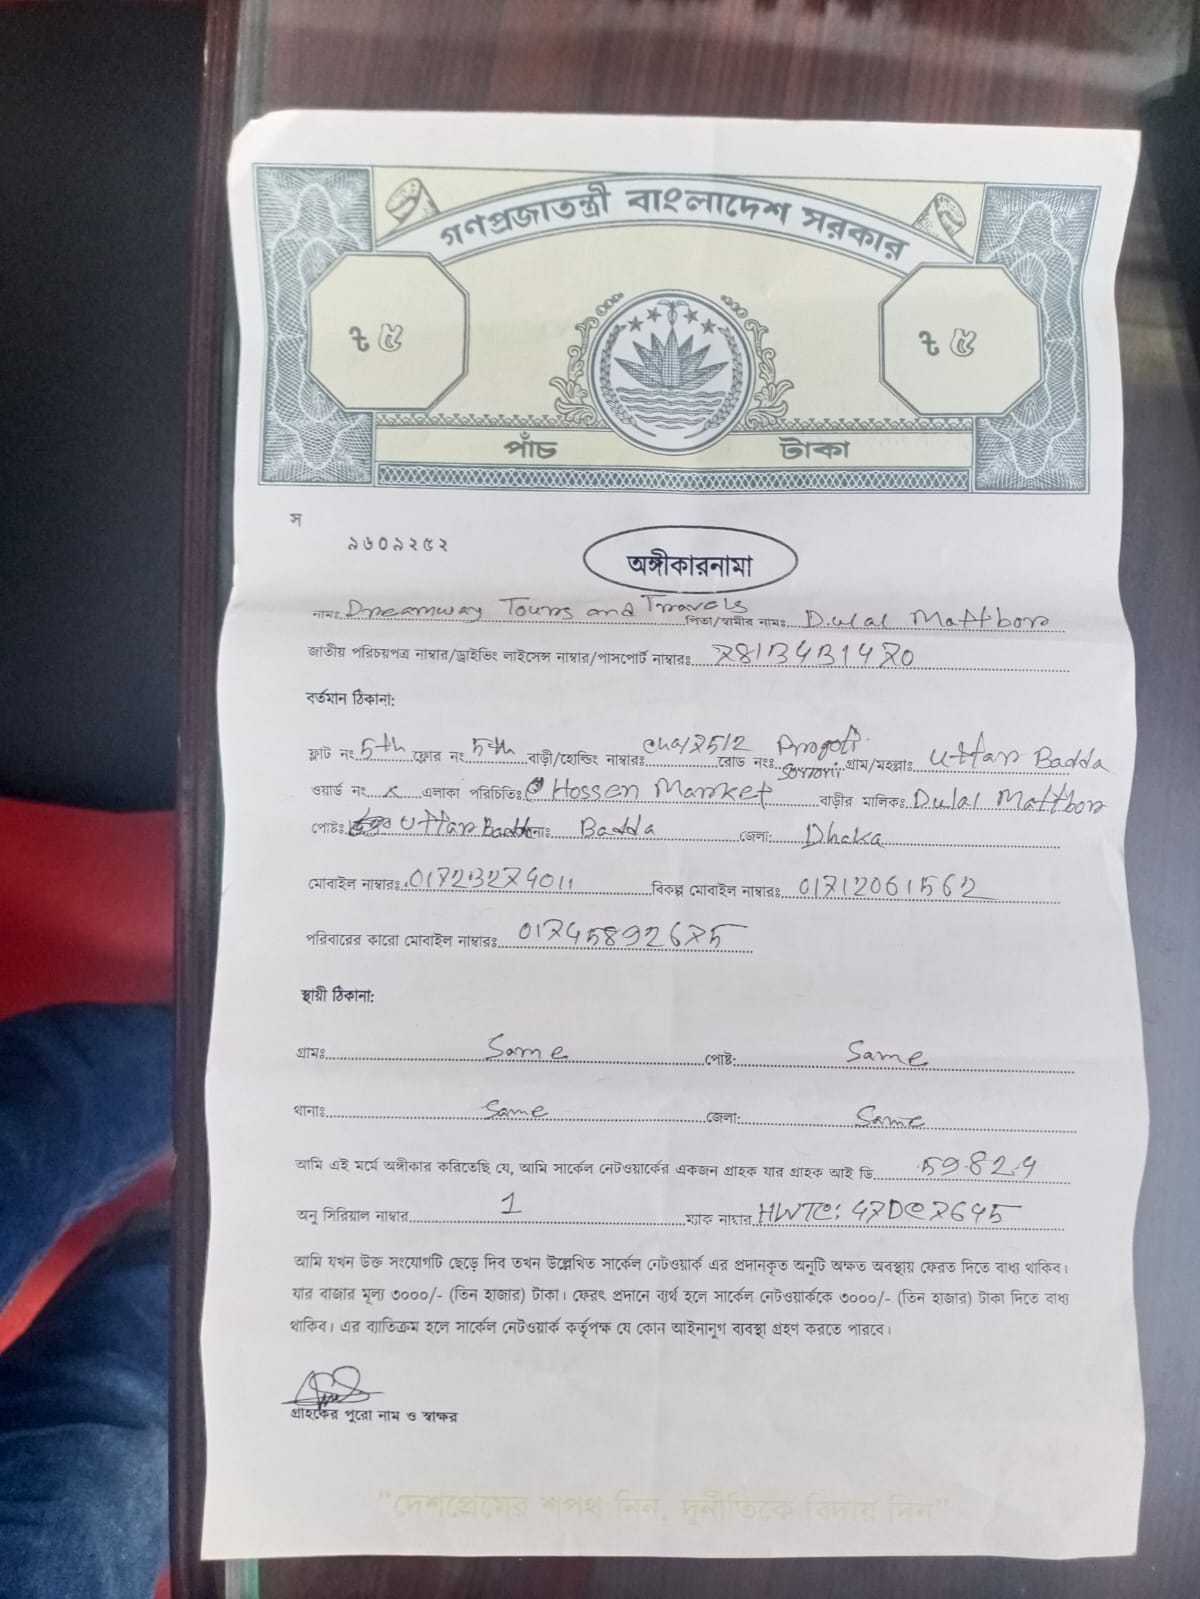 গণপ্রজাতন্ত্রী বাংলাদেশ সরকার
ট ৫ ট ৫
পাঁচ টাকা
স
৯৬০৯২৫২
অঙ্গীকারনামা
নামঃ Dreamway Tours and Travels পিতা/স্বামীর নামঃ Dulal Mattbor
জাতীয় পরিচয়পত্র নাম্বার/ড্রাইভিং লাইসেন্স নাম্বার/পাসপোর্ট নাম্বারঃ 7813431470
বর্তমান ঠিকানা:
ফ্লাট নং 5th ফ্লোর নং 5th বাড়ী/হোল্ডিং নাম্বারঃ cha/7512 রোড নংঃ Progoti Soroni গ্রাম/মহল্লাঃ Uttar Badda
ওয়ার্ড নং এলাকা পরিচিতিঃ Hossen Market বাড়ীর মালিকঃ Dulal Mattbor
পোষ্টঃ Uttar Badda নাঃ Badda জেলা: Dhaka
মোবাইল নাম্বারঃ 01723274011 বিকল্প মোবাইল নাম্বারঃ 01712061562
পরিবারের কারো মোবাইল নাম্বারঃ 01745892675
স্থায়ী ঠিকানা:
গ্রামঃ Same পোষ্ট: Same
থানাঃ Same জেলা: Same
আমি এই মর্মে অঙ্গীকার করিতেছি যে, আমি সার্কেল নেটওয়ার্কের একজন গ্রাহক যার গ্রাহক আই ডি 59824
অনু সিরিয়াল নাম্বার 1 ম্যাক নাম্বার HWTC: 47DC7645
আমি যখন উক্ত সংযোগটি ছেড়ে দিব তখন উল্লেখিত সার্কেল নেটওয়ার্ক এর প্রদানকৃত অনুটি অক্ষত অবস্থায় ফেরত দিতে বাধ্য থাকিব।
যার বাজার মূল্য ৩০০০/- (তিন হাজার) টাকা। ফেরৎ প্রদানে ব্যর্থ হলে সার্কেল নেটওয়ার্ককে ৩০০০/- (তিন হাজার) টাকা দিতে বাধ্য
থাকিব। এর ব্যতিক্রম হলে সার্কেল নেটওয়ার্ক কর্তৃপক্ষ যে কোন আইনানুগ ব্যবস্থা গ্রহণ করতে পারবে।
গ্রাহকের পুরো নাম ও স্বাক্ষর
"দেশপ্রেমের শপথ নিন, দুর্নীতিকে বিদায় দিন"